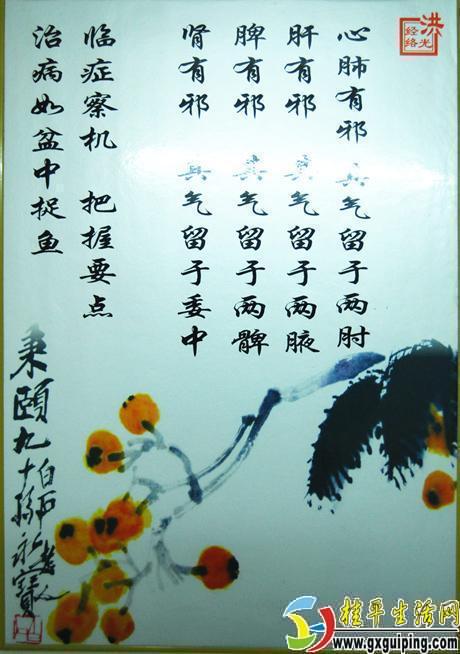 洪光
经络
心肺有邪 其气留于两肘
肝有邪 其气留于两腋
脾有邪 其气留于两髀
肾有邪 其气留于委中
临症察机 把握要点
治病如盆中捉鱼
秉颐九十
桂平生活网
www.gxguiping.com